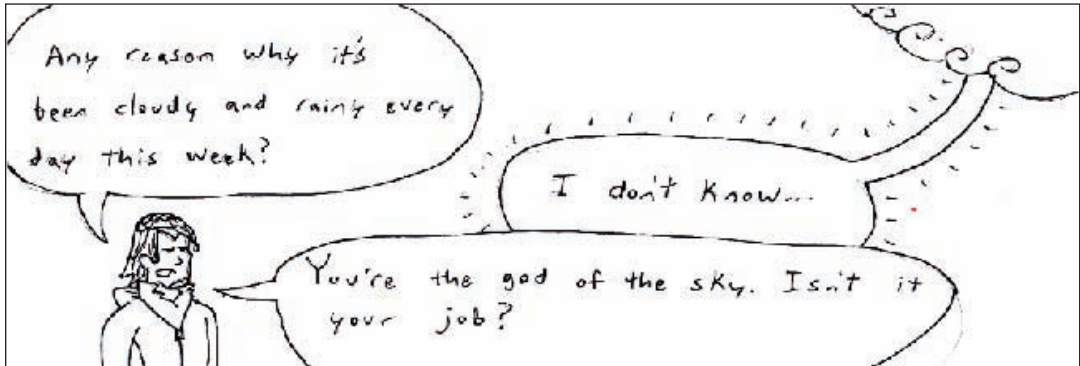 Any reason why it's
been cloudy and rainy every
day this week?
I don't know...
You're the god of the sky. Isn't it
your job?